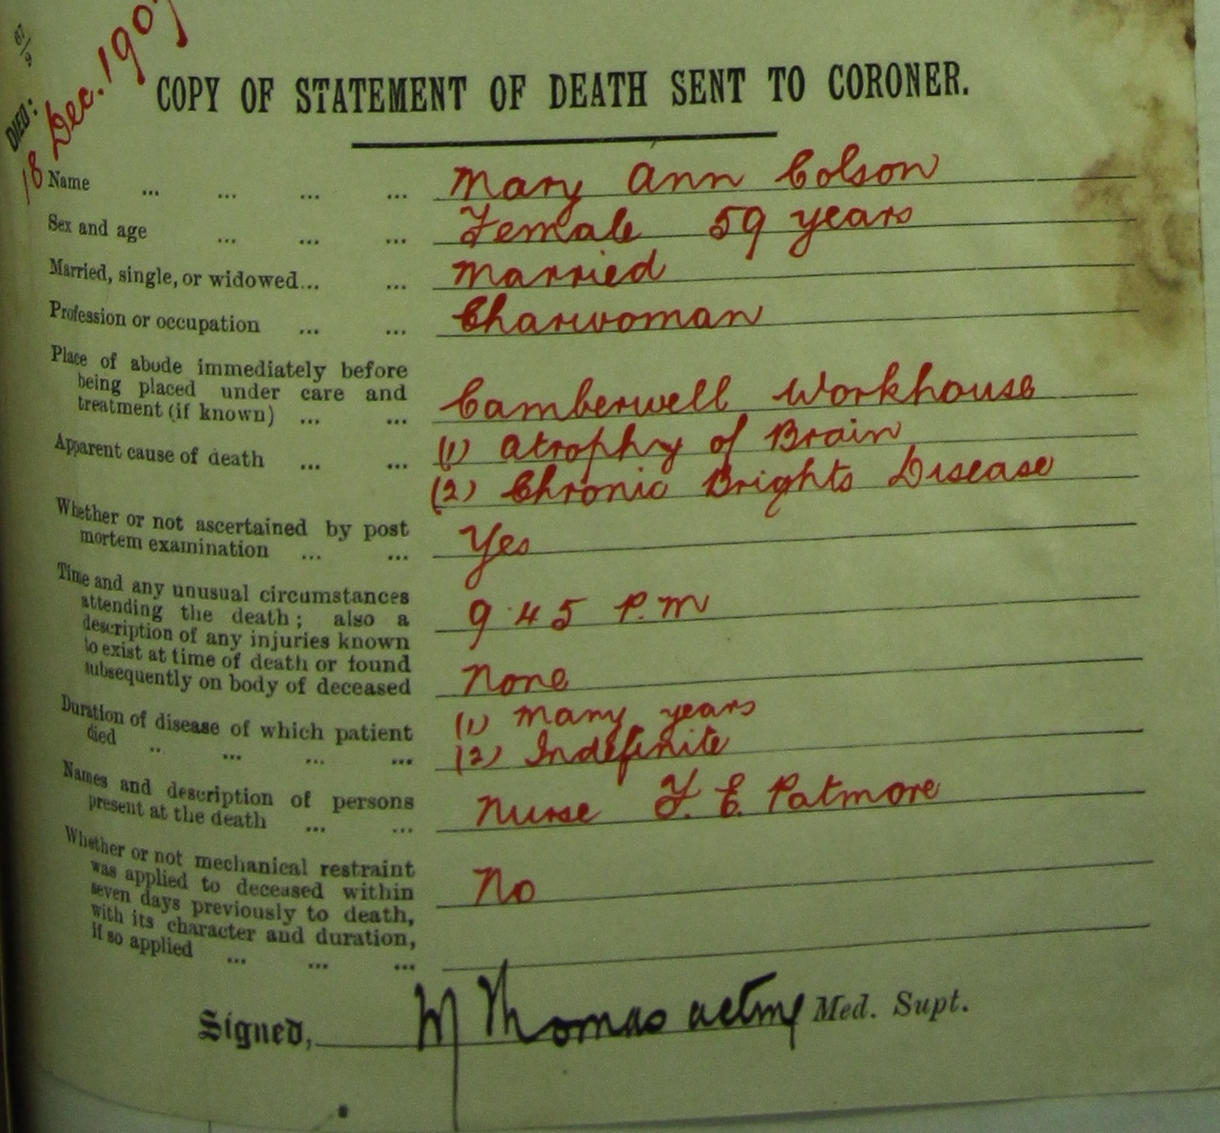 67/9
DIED:
18 Dec. 1907
COPY OF STATEMENT OF DEATH SENT TO CORONER.
Name ... ... ... ... Mary Ann Colson
Sex and age ... ... ... Female 59 years
Married, single, or widowed... ... Married
Profession or occupation ... ... Charwoman
Place of abode immediately before
being placed under care and
treatment (if known) ... ... Camberwell Workhouse
Apparent cause of death ... ... (1) Atrophy of Brain
(2) Chronic Brights Disease
Whether or not ascertained by post
mortem examination ... ... Yes
Time and any unusual circumstances
attending the death; also a 9.45 P.M
description of any injuries known
to exist at time of death or found
subsequently on body of deceased None
Duration of disease of which patient (1) Many years
died ... ... ... ... (2) Indefinite
Names and description of persons
present at the death ... ... Nurse F. E. Patmore
Whether or not mechanical restraint
was applied to deceased within No
seven days previously to death,
with its character and duration,
if so applied ... ... ...
Signed, Thomas acting Med. Supt.